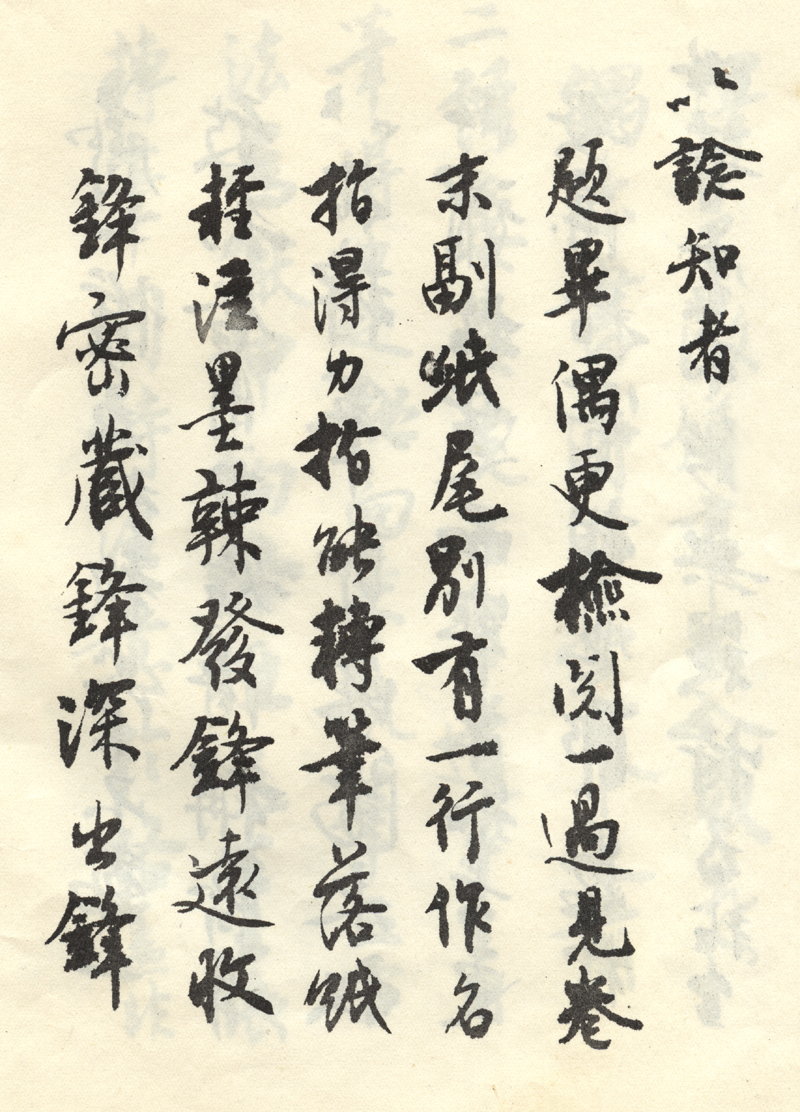 以諗知者
題畢偶更檢閱一過見卷
末副紙尾別有一行作名
指得力指能轉筆落紙
輕注墨辣發鋒遠收
鋒密藏鋒深出鋒